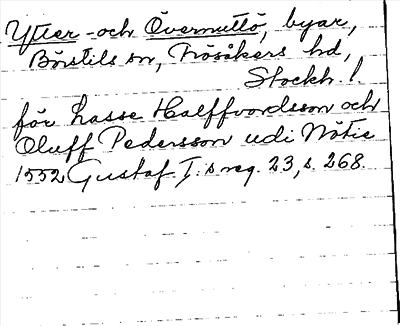 Ytter- och Övernuttö, byar,
Börstils sn, Frösåkers hd,
Stockh. l.
för Lasse Halffvordsson och
Oluff Pedersson udi Nötie
1552 Gustaf I:s reg. 23, s. 268.